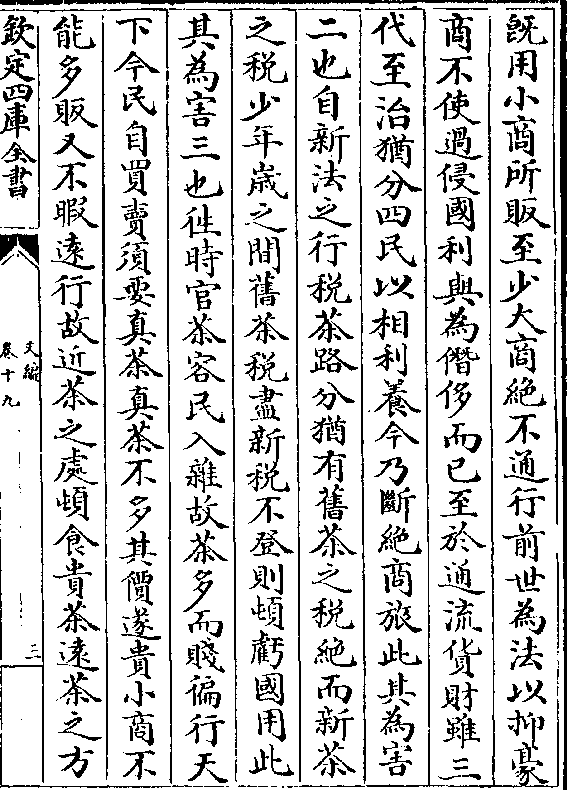 既用小商所販至少大商絕不通行前世為法以抑豪
商不使過侵國利與為僭侈而已至於通流貨財雖三
代至治猶分四民以相利養今乃斷絕商旅此其為害
二也自新法之行稅茶路分猶有舊茶之稅絕而新茶
之稅少年歲之間舊茶稅盡新稅不登則頓虧國用此
其為害三也徃時官茶容民入雜故茶多而賤徧行天
下今民自買賣須要真茶真茶不多其價遂貴小商不
能多販又不暇遠行故近茶之處頓食貴茶遠茶之方
欽定四庫全書
文編
卷十九
三